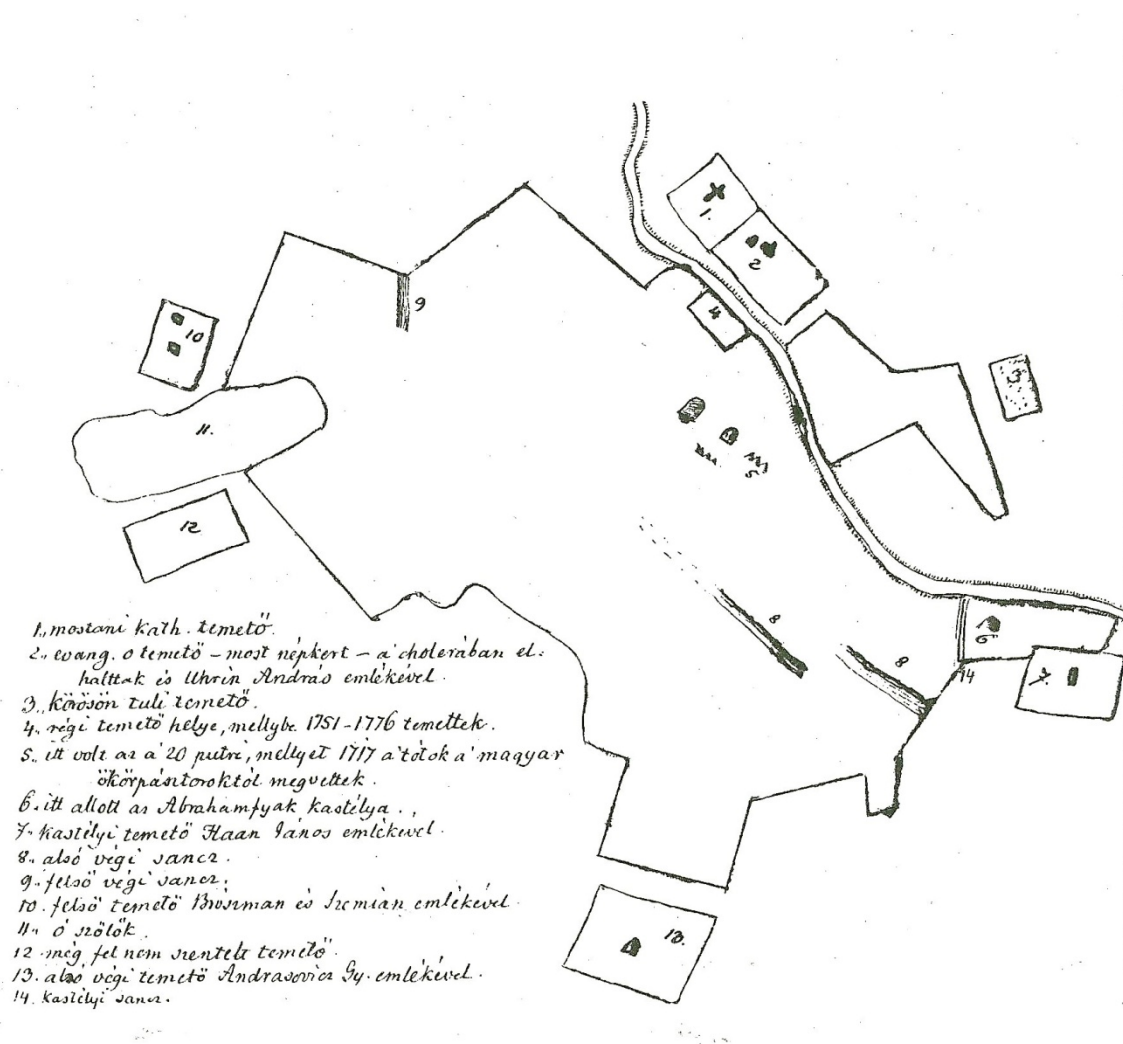 1.
2
3
4
9
10
11.
5
12
8
8
6
14
7.
13.
1., mostani kath. temető.
2., evang. o temető – most népkert – a' cholerában el:
halttak és Uhrin András emlékével.
3., körösön tuli temető.
4., régi temető helye, mellybe 1751-1776 temettek.
5., itt volt az a' 20 putri, mellyet 1717 a' tótok a' magyar
ökörpásztoroktól megvettek.
6. itt állott az Abrahamfyak kastélya.,
7. Kastélyi temető Haan János emlékével.
8., alsó végi sancz.
9. felső végi sancz.
10. felső temető és Szemián emlékével.
11. ó szőlők.
12 még fel nem szentelt temető.
13. alsó végi temető Andrasovicz Gy. emlékével.
14. Kastélyi sancz.